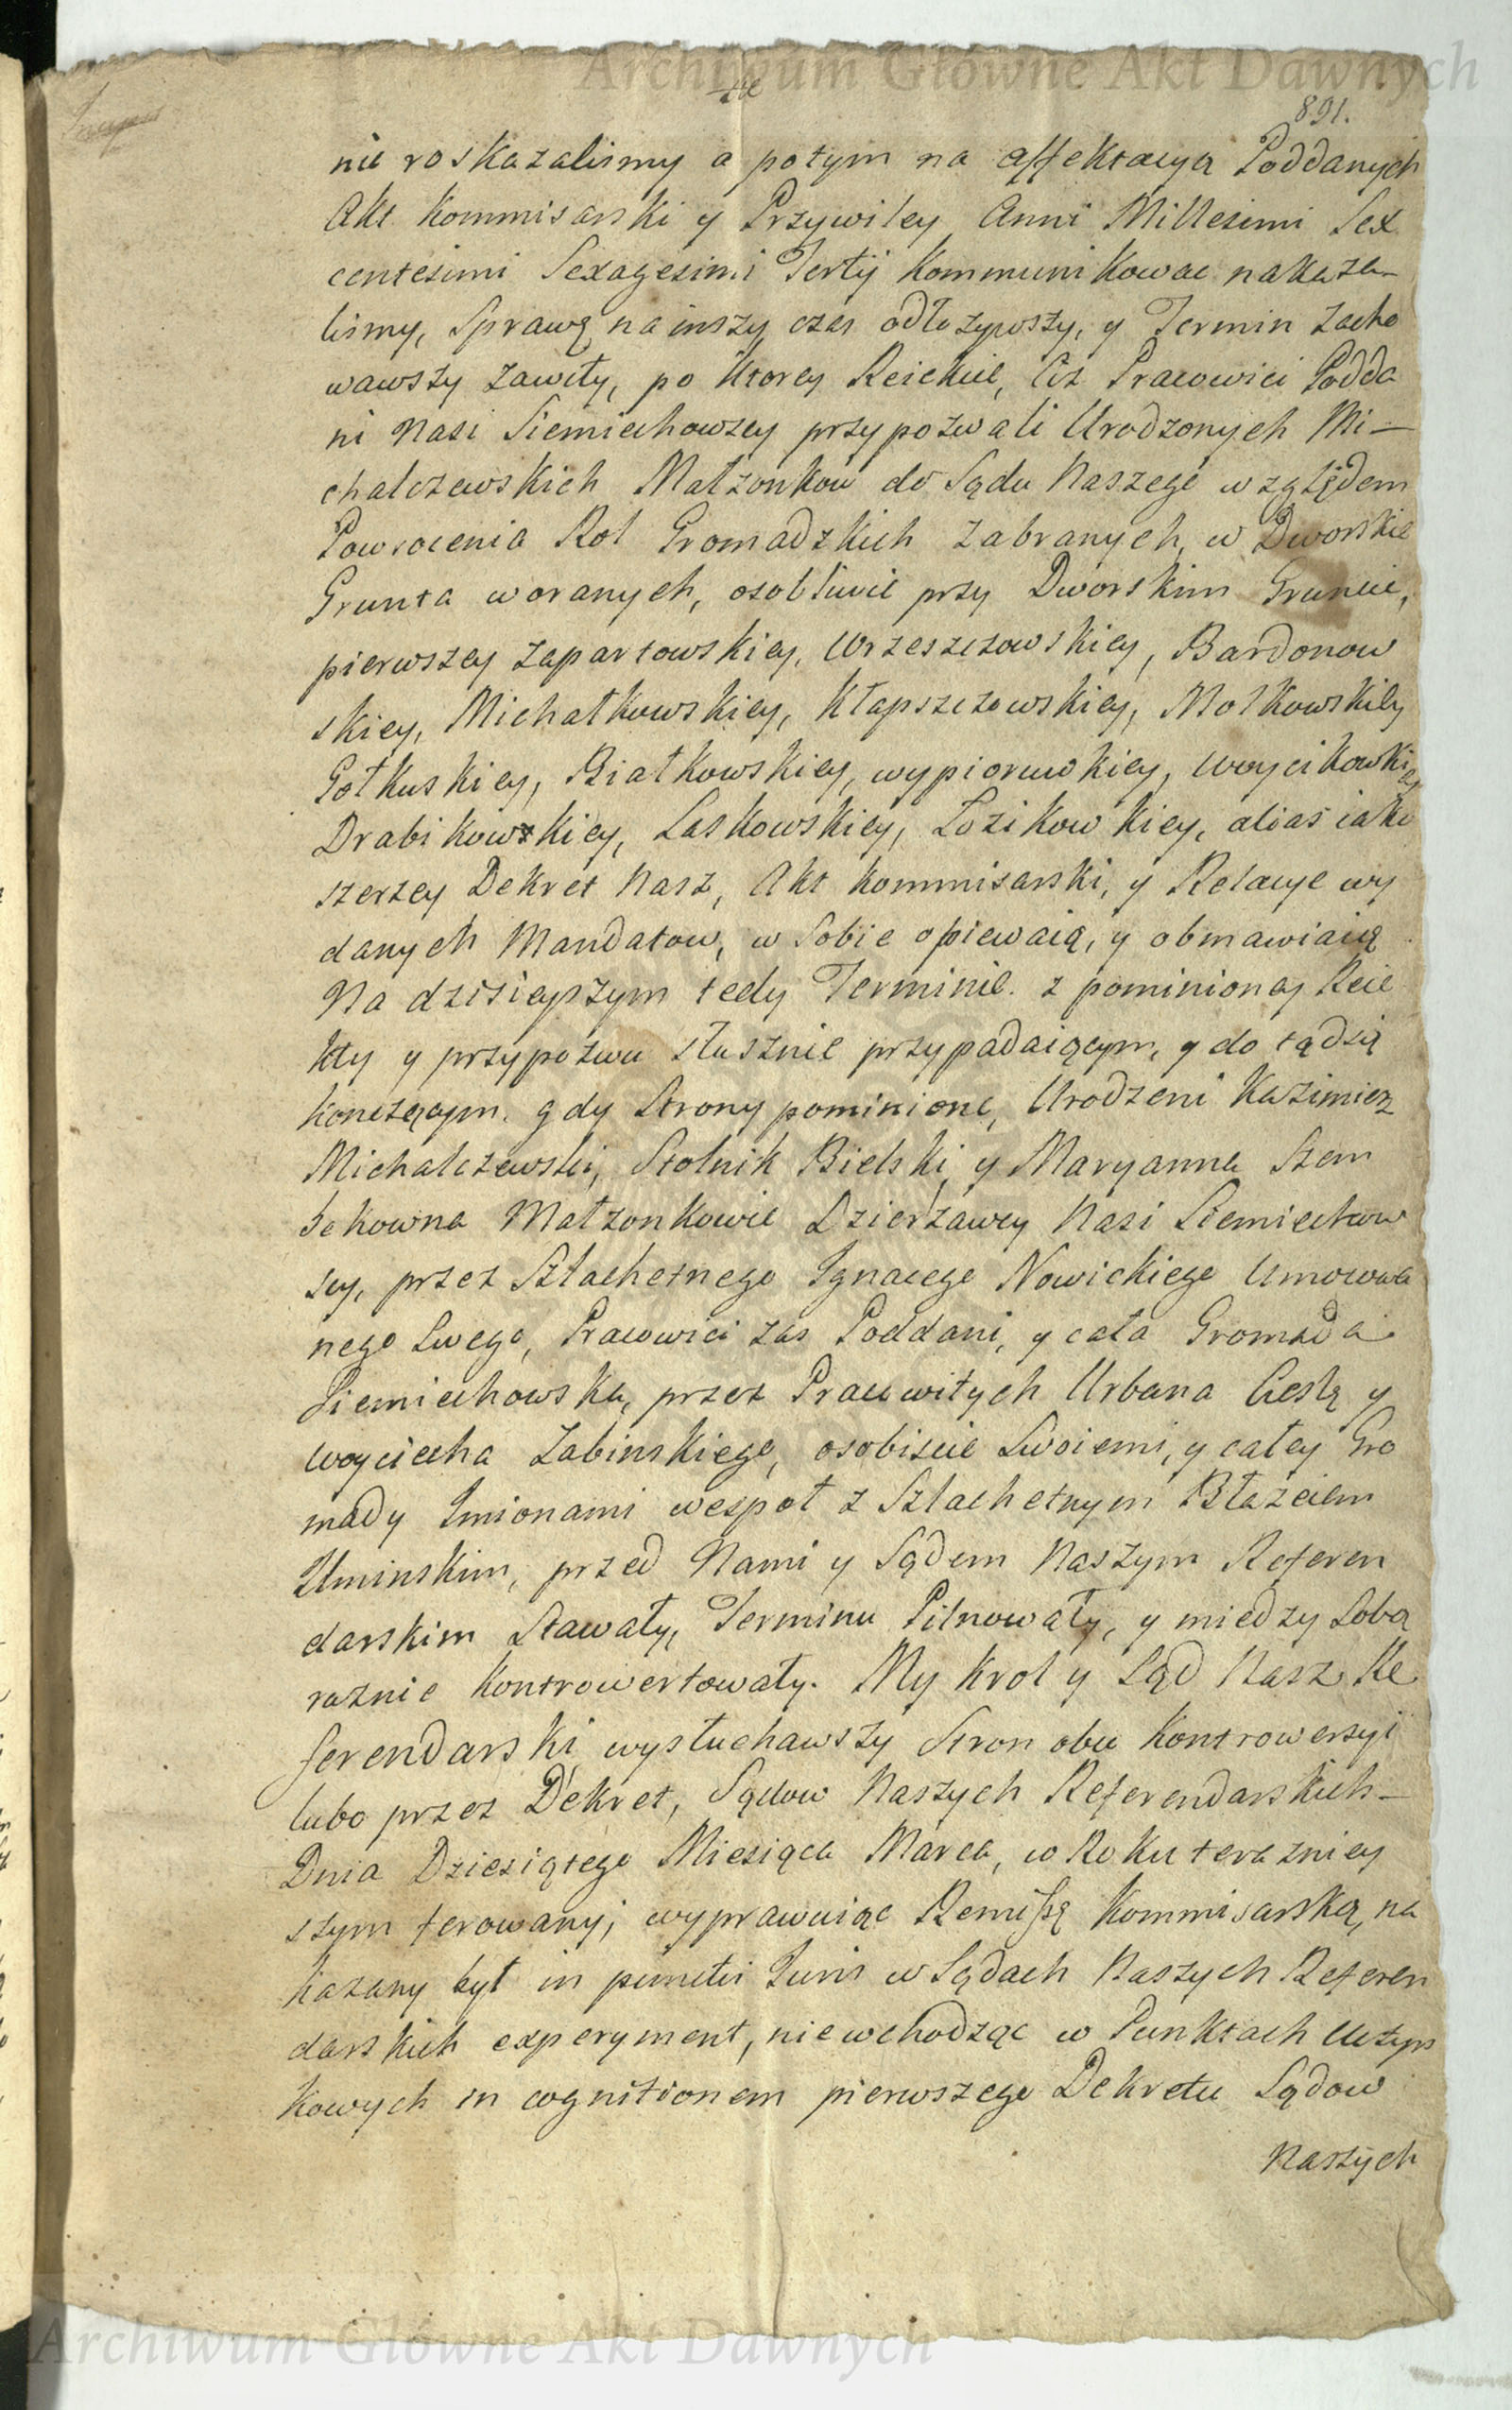 Archiwum Główne Akt Dawnych
891.
nie roskazalismy a potym na affektacyą Poddanych
Akt Kommisarski y Przywiley Anni Millesimi Sex
centesimi Sexagesimi Tertij Kommunikowac nakaza–
lismy, Sprawę na inszy czas odłożywszy, y Termin zacho
wawszy zawity, po ktorey Reiekcie, Ciż Pracowici Podda
ni Nasi Siemiechowscy przypozwali Urodzonych Mi–
chalczewskich Małżonkow do Sądu Naszego względem
Powrocenia Rol Gromadzkich zabranych, w Dworskie
Grunta woranych, osobliwie przy Dworskim Gruncie,
pierwszey Zapartowskiey, Wrzeszczowskiey, Bardonow
skiey, Michałkowskiey, Kłapszczowskiey, Molkowskiey
Gołkuskiey, Białkowskiey, wypiorowkiey, Woycikowskiey
Drabikowskiey, Laskowskiey, Łozikowkiey, alias iako
szerzey Dekret Nasz, Akt Kommisarski, y Relacye wy
danych Mandatow, w Sobie opiewaią, y obmawiaią
Na dzisieyszym tedy Terminie z pominioney Reie
kty y przypozwu słusznie przypadaiącym, y do tądsią
konczącym, gdy Strony pominione, Urodzeni Kazimierz
Michalczewski, Stolnik Bielski y Maryanna Szem
bekowna Małżonkowie Dzierżawcy Nasi Siemiechow
scy, przez Szlachetnego Ignacego Nowickiego Umocowa
nego Swego, Pracowici zas Poddani, y cała Gromada
Siemiechowska, przez Pracowitych Urbana Cieslą y
Woyciecha Zabinskiego, osobiscie Swoiemi, y całey Gro
mady Imionami wespoł z Szlachetnym Błażeiem
Uminskim, przed Nami y Sądem Naszym Referen
darskim Stawały, Terminu Pilnowały, y miedzy Sobą
roznie kontrowertowały. My Krol y Sąd Nasz Re
ferendarski wysłuchawszy Stron obu Kontrowersyi
lubo przez Dekret, Sądow Naszych Referendarskich–
Dnia Dziesiątego Miesiąca Marca, w Roku teraźniey
szym ferowany, wyprawuiąc Remissę Kommisarską, na
kazany był in punctu Juris w Sądach Naszych Referen
darskich experyment, niewchodząc w Punktach Uczyn
kowych in cognitionem pierwszego Dekretu Sądow
Naszych
Archiwum Główne Akt Dawnych